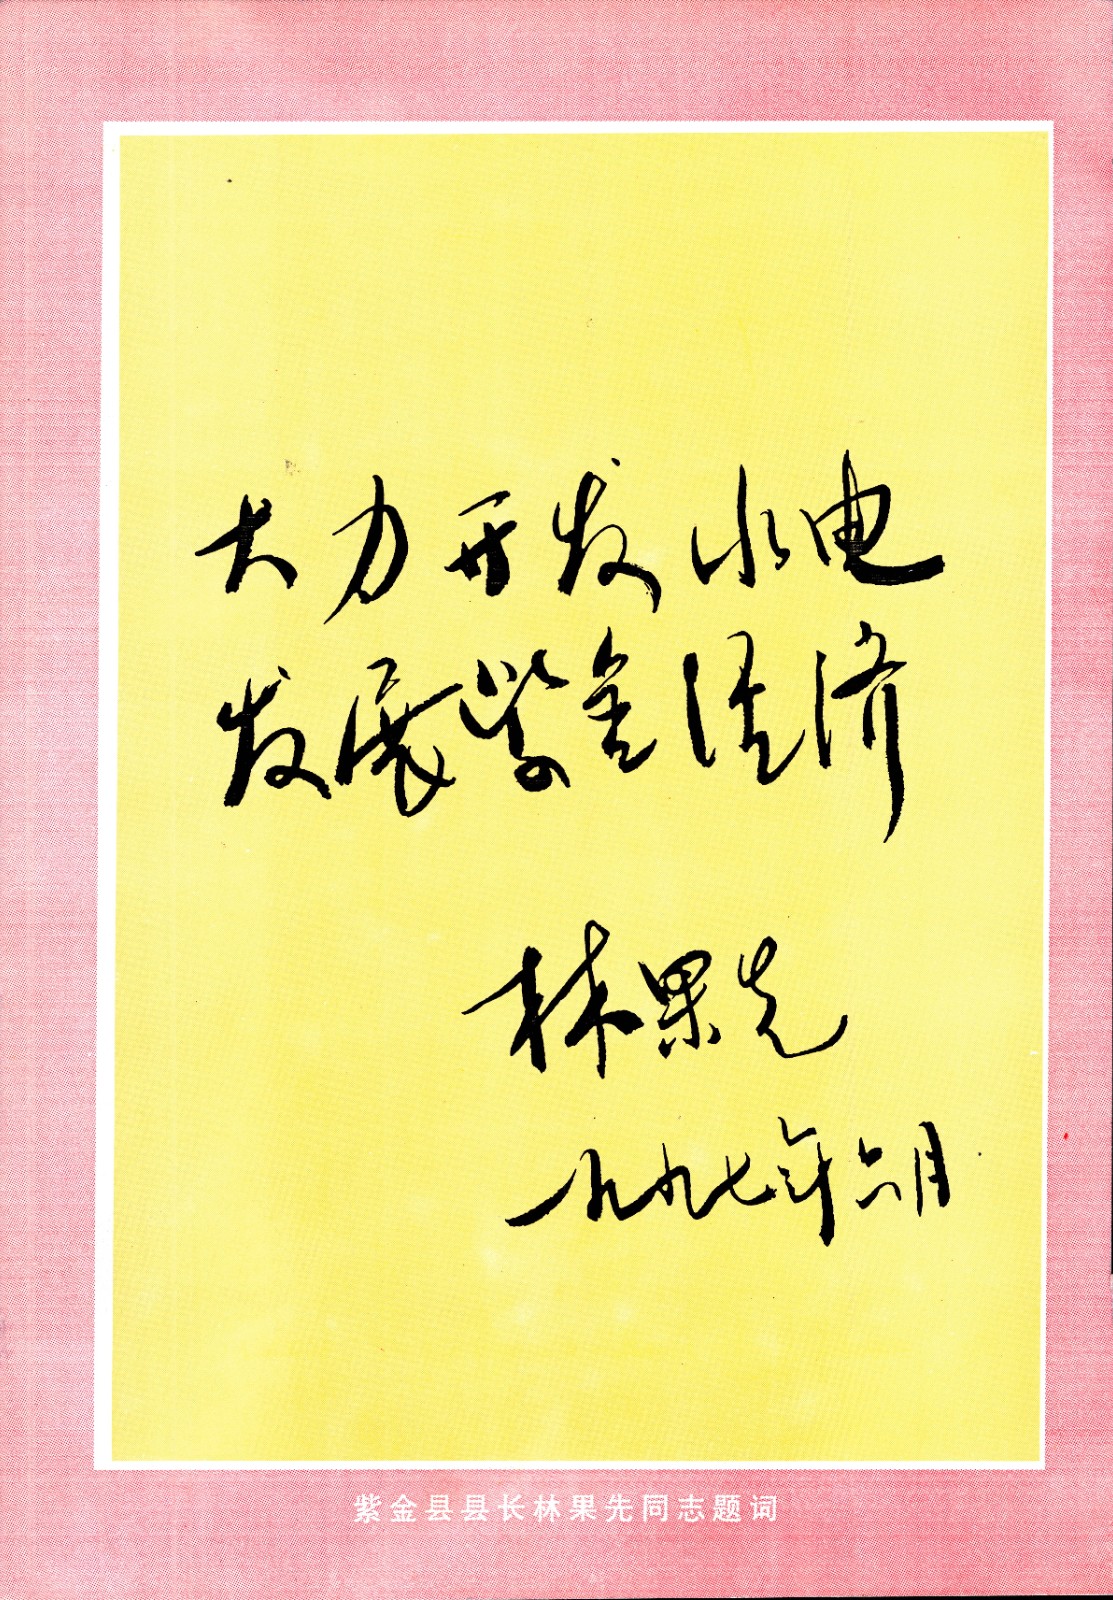 大力开发水电
发展紫金经济
林果先
一九九七年六月
紫金县县长林果先同志题词